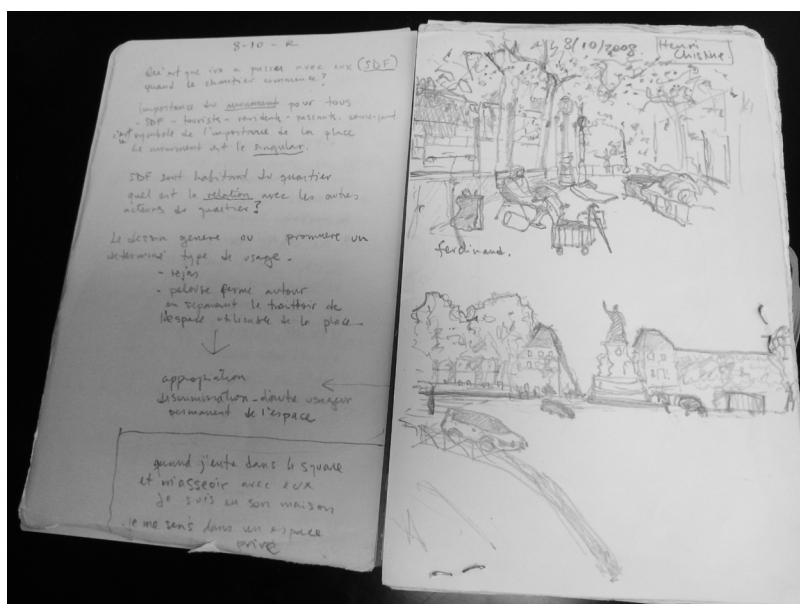 8-10-
Qu'est que ira a passer avec eux (SDF)
quand le chantier commence?
Importance du monument pour tous
- SDF - touriste - residents - passants.
c'est symbole de l'importance de la place
Le monument est le singular.
SDF sont habitant du quartier
quel est la relation avec les autres
acteurs du quartier?
Le dessin genere ou promuere un
determiné type de usage.
- rejas
- pelouse ferme autour
en separant le trottoir de
l'espace utilisable de la place
appropiation
discrimination - d'autre usageur
permanent de l'espace
quand j'entre dans le square
et m'asseoir avec eux
je suis en son maison
je me sens dans un espace
privé
8/10/2008.
Henri
Christine
ferdinand.